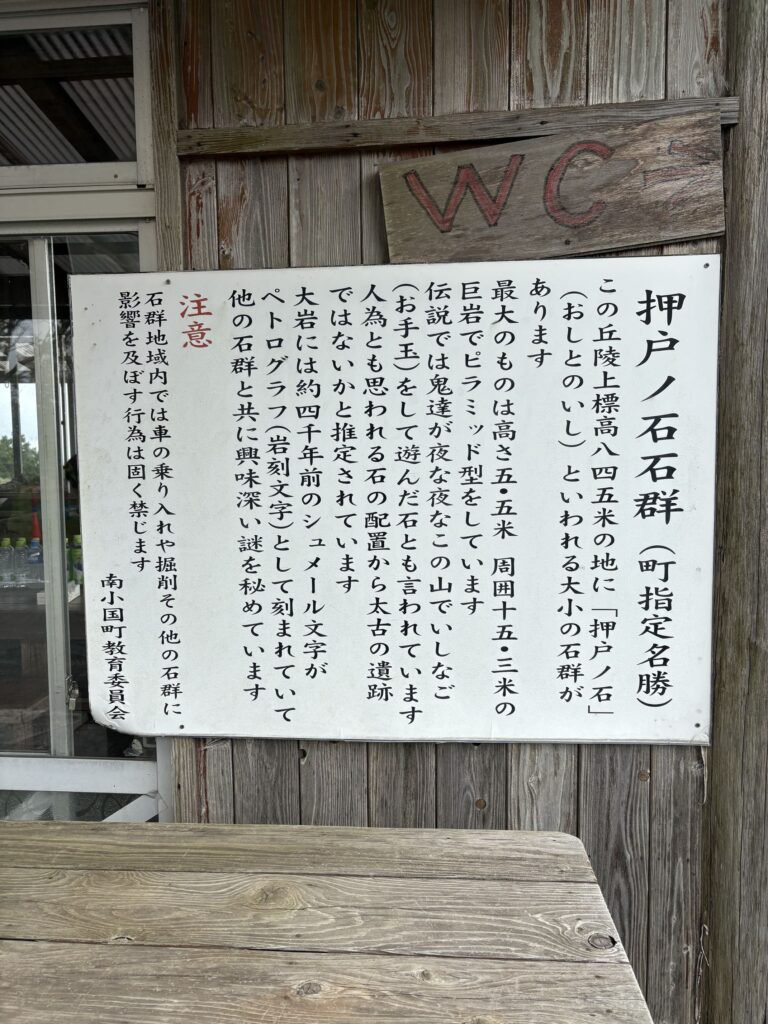 WC
押戸ノ石石群（町指定名勝）
この丘陵上標高八四五米の地に「押戸ノ石」
（おしとのいし）といわれる大小の石群が
あります
最大のものは高さ五・五米　周囲十五・三米の
巨岩でピラミッド型をしています
伝説では鬼達が夜な夜なこの山でいしなご
（お手玉）をして遊んだ石とも言われています
人為とも思われる石の配置から太古の遺跡
ではないかと推定されています
大岩には約四千年前のシュメール文字が
ペトログラフ（岩刻文字）として刻まれていて
他の石群と共に興味深い謎を秘めています
注意
石群地域内では車の乗り入れや掘削その他の石群に
影響を及ぼす行為は固く禁じます
南小国町教育委員会